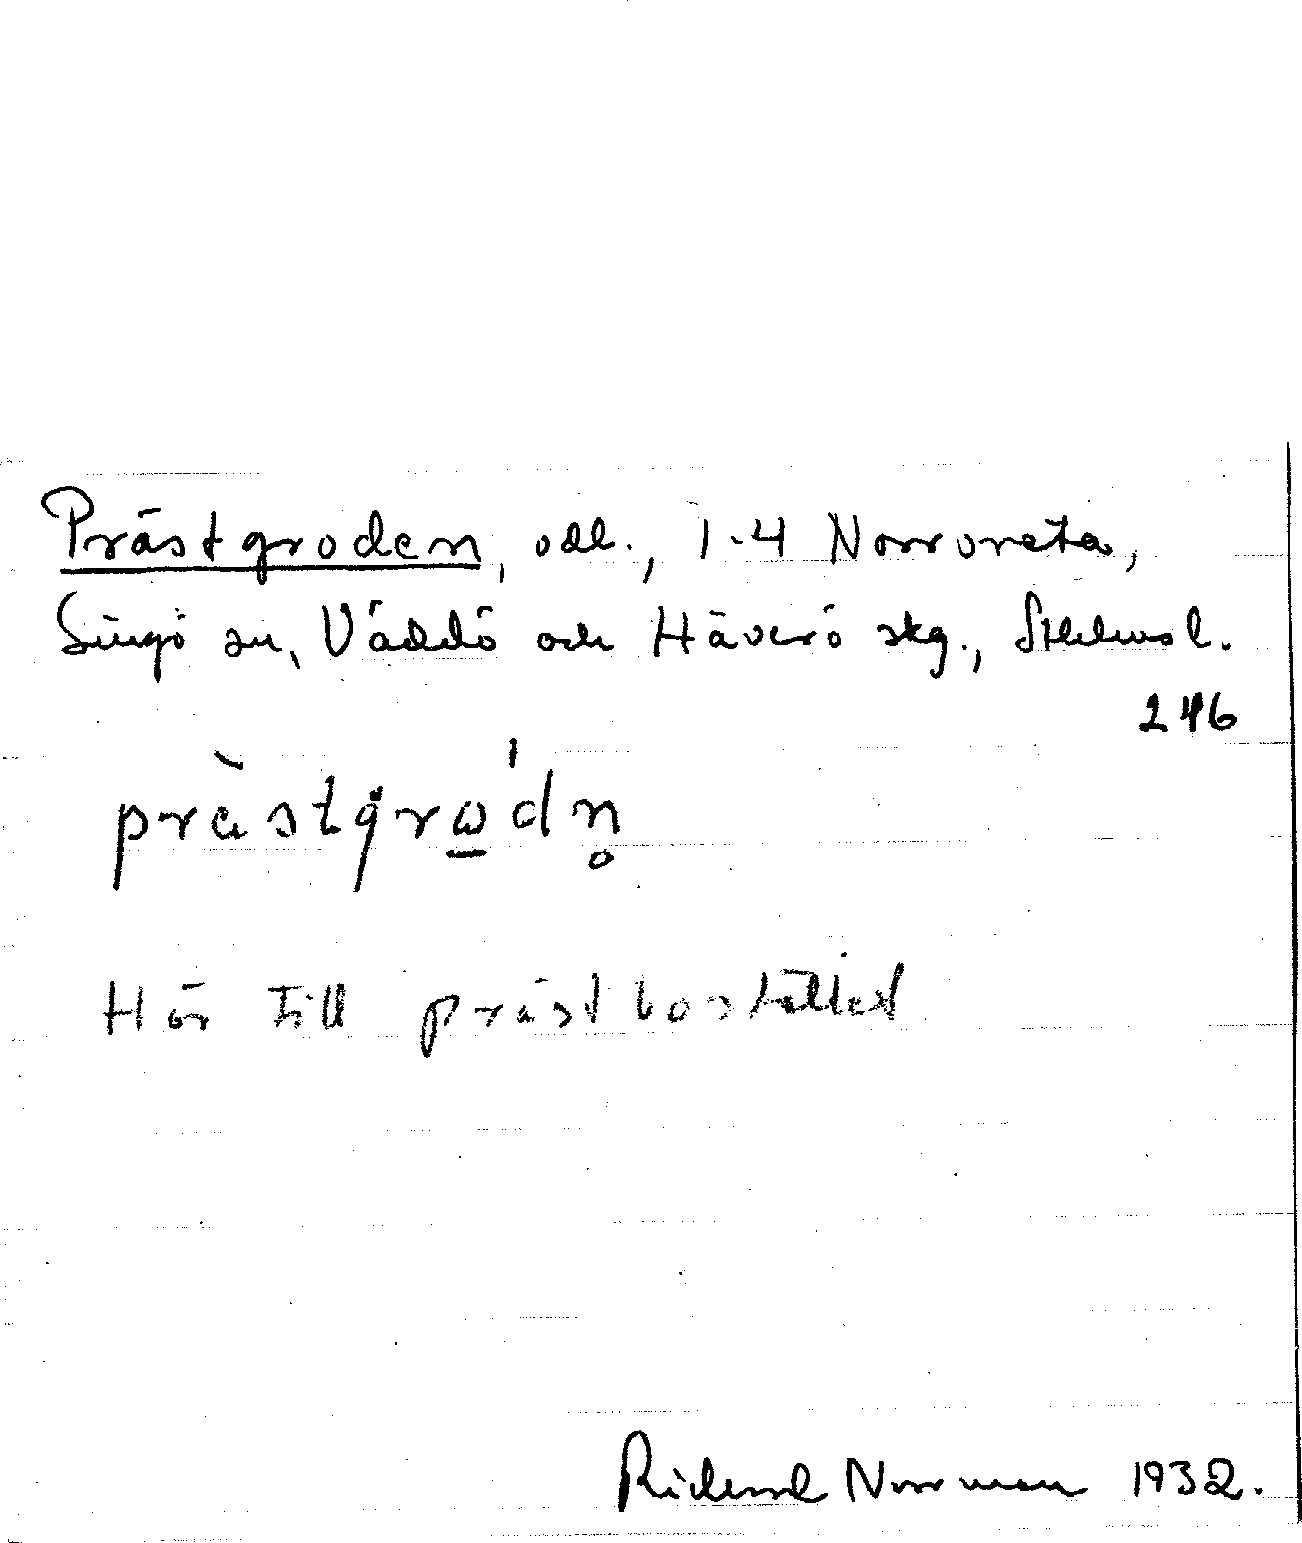 Prästgroden, odl., 1-4 Norrvreta,
Singö sn, Väddö och Häverö skg., Sthlms l.
246
prästgrω̲'dn̥
Hör till prästbostället
Richard Norrman 1932.